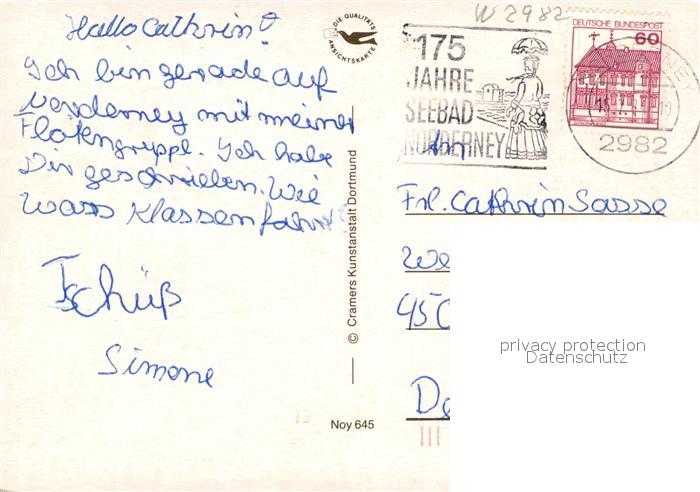 Hallo Cathrin!
Ich bin gerade auf
Norderney mit meiner
Flötengruppe. Ich habe
Dir geschrieben. Wie
wars Klassenfahrt?
Tschüß
Simone
DIE QUALITÄTS
ANSICHTSKARTE
© Cramers Kunstanstalt Dortmund
Noy 645
W 2982
175
JAHRE
SEEBAD
NORDERNEY
DEUTSCHE BUNDESPOST
60
2982
An
Frl. Cathrin Sasse
We
450
De
privacy protection
Datenschutz